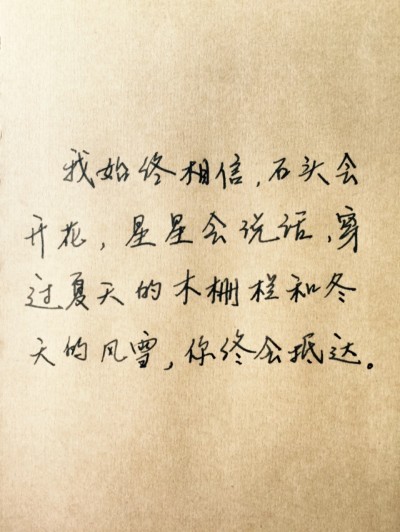 我始终相信,石头会
开花,星星会说话,穿
过夏天的木栅栏和冬
天的风雪,你终会抵达。